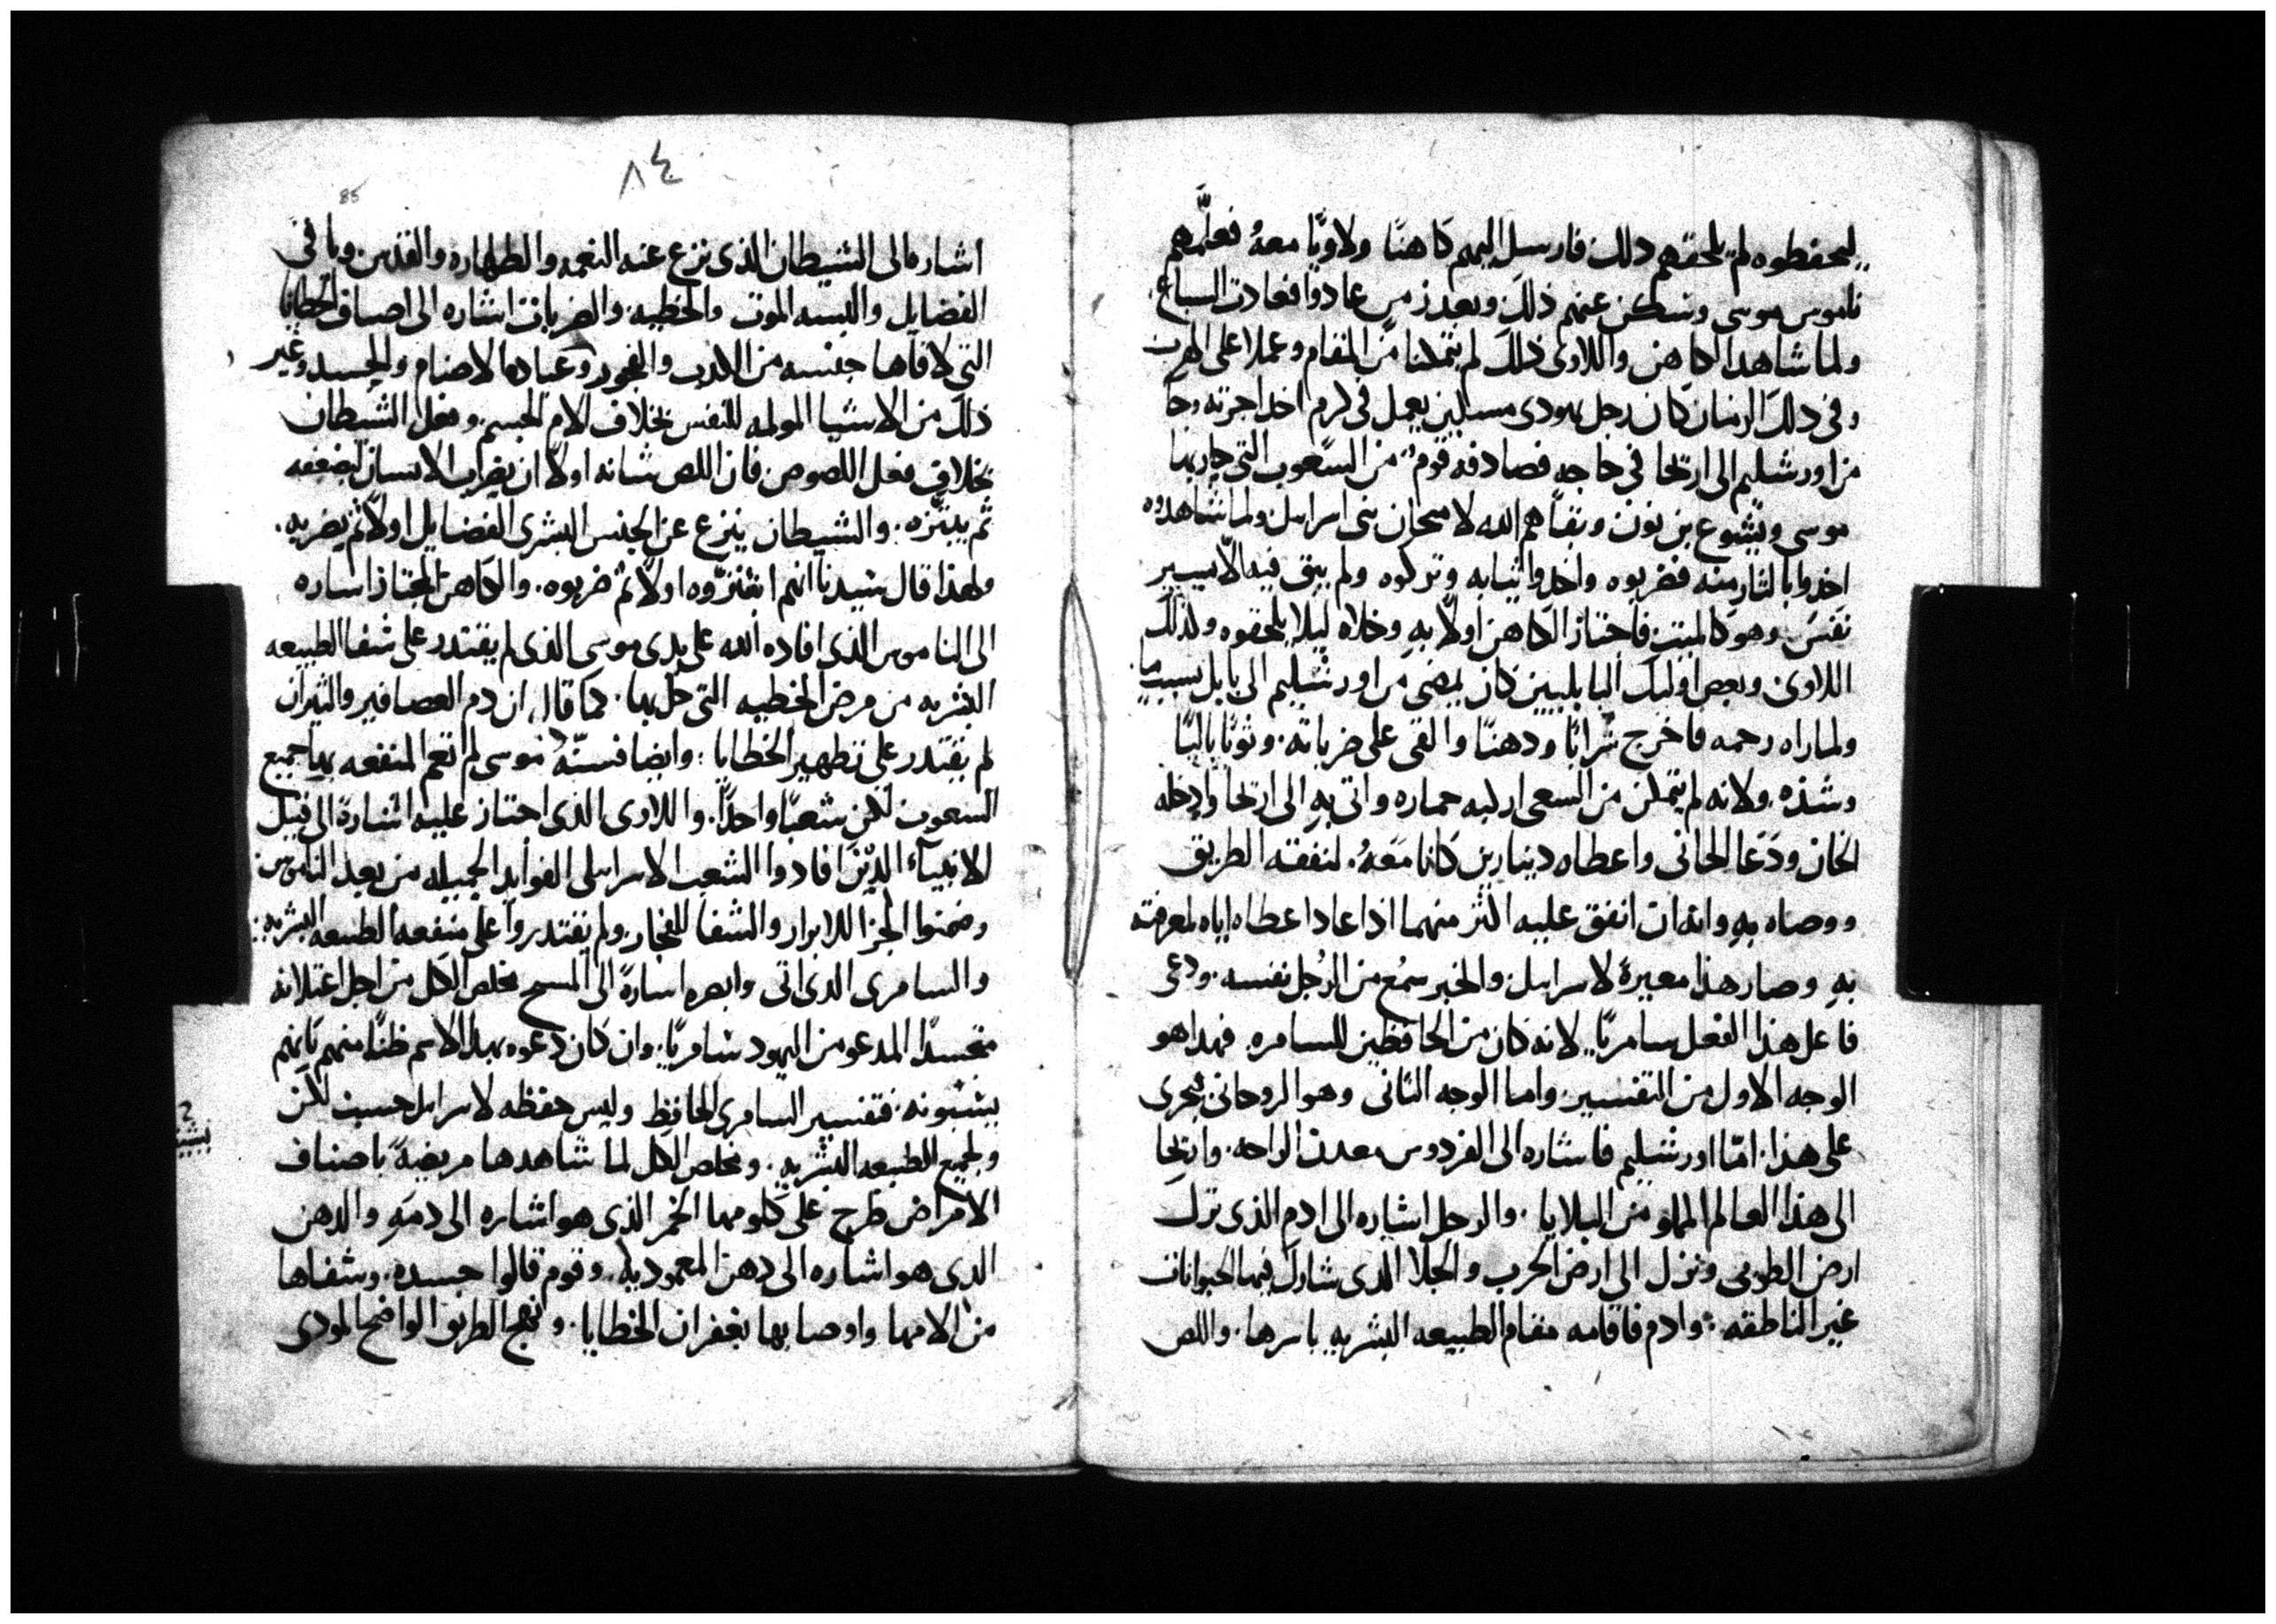 ليحفطوه لم يلحقهم دلك فارسل اليهم كاهنًا ولاويًا معهُ فعلّمهم
ناموس موسى وسكن عنهم ذلك وبعد زمن عادوا فعادت السباع
ولما شاهد الكاهن واللاوى ذلك لم يتمكنا من المقام وعملا على الهرب
وفى دلك الزمان كان رجل يهودى مسكين يعمل فى كرم اخد اجرته وجا
من اورشليم الى اريحا فى حاجه فصادفه قوم من الشعوب التى حاربها
موسى ويشوع بن نون وبقاهم الله لامتحان بنى اسرايل ولما شاهدوه
اخدوا بالثار منه فضربوه واخدوا ثيابه وتركوه ولم يبق فيه الّا يسير
نفس وهو كالميت فاجتاز الكاهن اولًا به وخلاه ليلا يلحقوه ولذلك
اللاوى وبعض اوليك البابليين كان يمضى من اورشليم الى بابل بسبب ما
ولما راه رحمه فاخرج شرابًا ودهنًا والقى على ضرباته وثوبًا باليًا
وشده ولانه لم يتمكن من السعى اركبه حماره واتى به الى اريحا وادخله
الخان ودَعَا الخانى واعطاه دينارين كانا مَعَهُ لنفقته الطريق
ووصاه بهِ وانه ان انفق عليه اكثر منهما اذا عاد اعطاه اياه لمعرفته
بهِ وصار هذا معيرة لاسرايل والخبر سمُع من الرُجل نفسه ودعى
فاعل هذا الفعل سامريًا لانه كان من الحافظين للسامره فهدا هو
الوجه الاول من التفسير واما الوجه التانى وهو الروحانى فيجرى
على هذا امّا اورشليم فاشاره الى الفردوس معدن الراحه واريحا
الى هذا العالم المملو من البلايا والرجل اشاره الى ادم الذى ترك
ارض الطوبى ونزل الى ارض الحرب والجلا الدى شارك فيها الحيوانات
غير الناطقه وادم فاقامه مقام الطبيعه البشريه باسرها واللص
٨٤
85
اشاره الى الشيطان الذى نزع عنه النعمه والطهاره والقدس وباقى
الفضايل والبسه الموت والخطيه والضربات اشاره الى اصناف الخطايا
التى لاقاها جنسه من الكدب والفجور وعباده الاصنام والحسد وغير
ذلك من الاشيا المولمه للنفس بخلاف الام الجسم وفعل الشيطان
بخلاف فعل اللصوص فان اللص شانه اولًا ان يضرب الانسان ليضعفه
ثم يبتزه والشيطان ينزع عن الجنس البشرى الفضايل اولًا ثم يضربه
ولهذا قال سيدنا انهم ابتزّوه اولًا ثم ضربوه والكاهن المجتاز اساره
الى الناموس الذى افاده الله على يدى موسى الذى لم يقتدر على شفا الطبيعه
البشريه من مرض الخطيه التى حل بها كما قال ان دم العصافير والثيران
لم يقتدر على تطهير الخطايا وايضا فسنّة موسى لم تعم المنفعه بها جميع
السعوب لكن شعبًا واحدًا واللاوى الذى اجتاز عليه اشارة الى قبيل
الانبياء الذين افادوا الشعب الاسرايلى الفوايد الجميله من بعد الناموس
وضمنوا الجزا للابرار والشفا للفجار ولم يقتدروا على منفعه الطبيعه البشريه
والسامرى الدى اتى وابصره اسارة الى المسيح مخلص الكل من اجل اعتلانه
متجسدًا المدعو من اليهود سامريًا وان كان دعوه بهدا الاسم ظنًا منهم بانهم
يسبّونه فتفسير السامرى الحافظ وليس حفظه لاسرايل حسب لكن
ولجميع الطبيعه البشريه ومخلص الكل لما شاهدها مريضةً باصناف
الامراض طرح على كلومها الخمر الذى هو اشاره الى دمه والدهن
الدى هو اشاره الى دهن المعموديه وقوم قالوا جسده وشفاها
من الامها واوصا بها بغفران الخطايا ونهج الطريق الواضح المودى